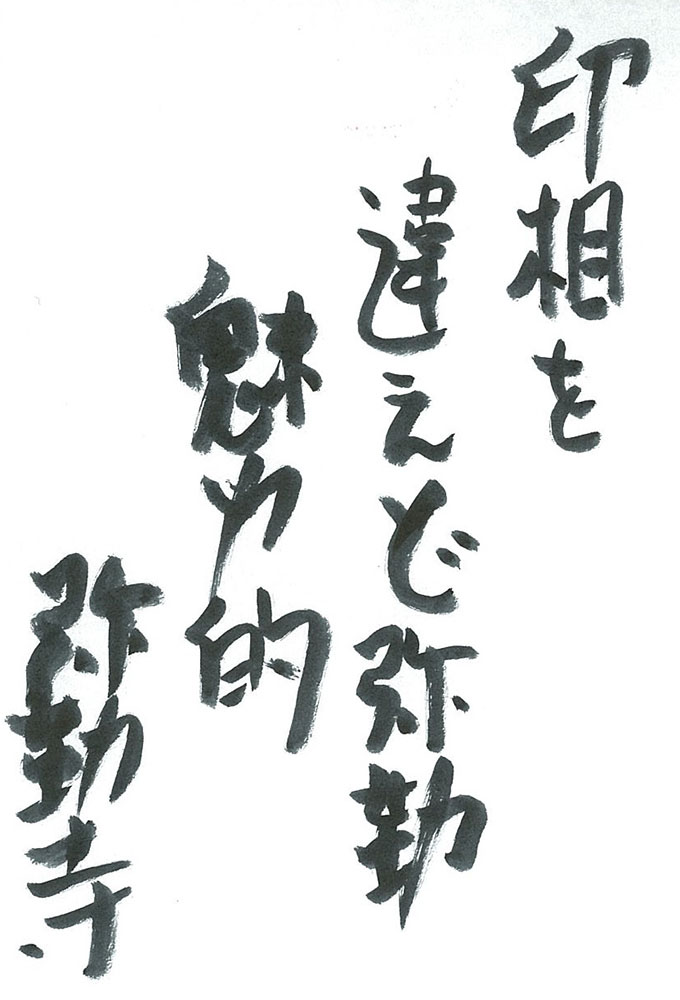 印相を
違えど弥勒
魅力的
弥勒寺